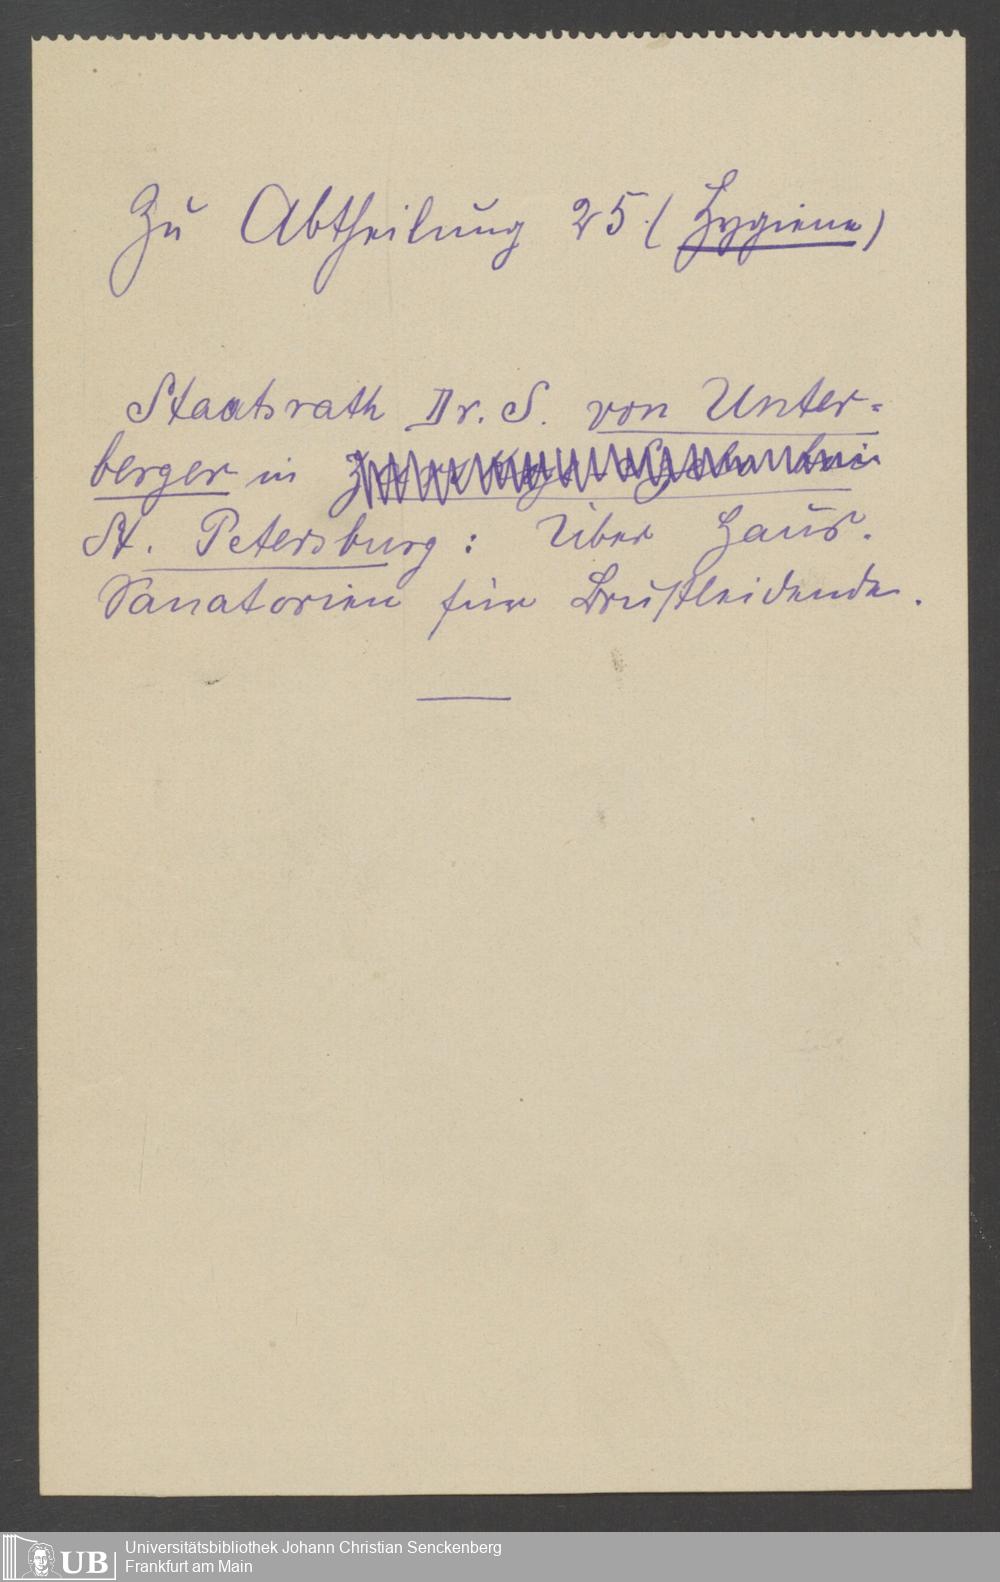 Zu Abtheilung 25. (Hygiene)
Staatsrath Dr. S. von Unter-
berger in
St. Petersburg: Über Haus-
Sanatorien für Brustleidende.
UB
Universitätsbibliothek Johann Christian Senckenberg
Frankfurt am Main